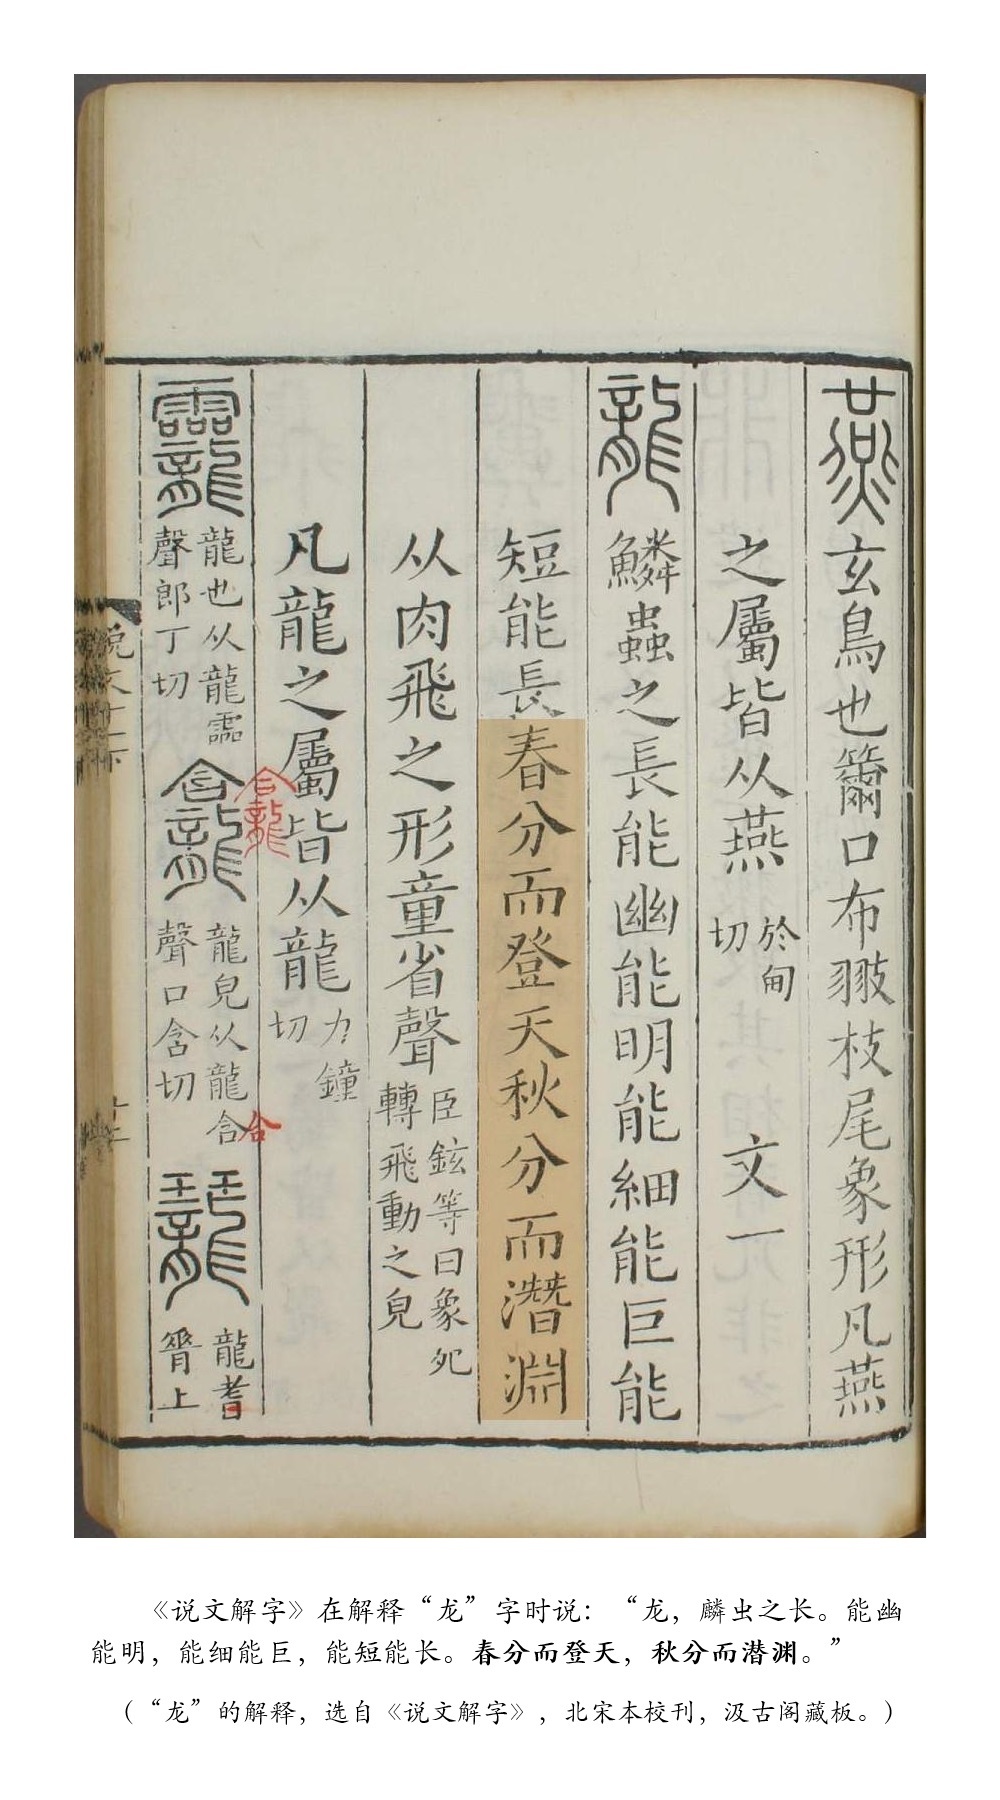 燕玄鳥也籋口布翄枝尾象形凡燕
之屬皆从燕於甸切 文一
龍鱗蟲之長能幽能明能細能巨能
短能長春分而登天秋分而潛淵
从肉飛之形童省聲臣鉉等曰象夗轉飛動之皃
凡龍之屬皆从龍力鐘切
龗龍也从龍霝聲郎丁切龕龍皃从龍含聲口含切䶬龍耆脊上
龕
合
說文十一下
《说文解字》在解释“龙”字时说：“龙，麟虫之长。能幽
能明，能细能巨，能短能长。春分而登天，秋分而潜渊。”
（“龙”的解释，选自《说文解字》，北宋本校刊，汲古阁藏板。）